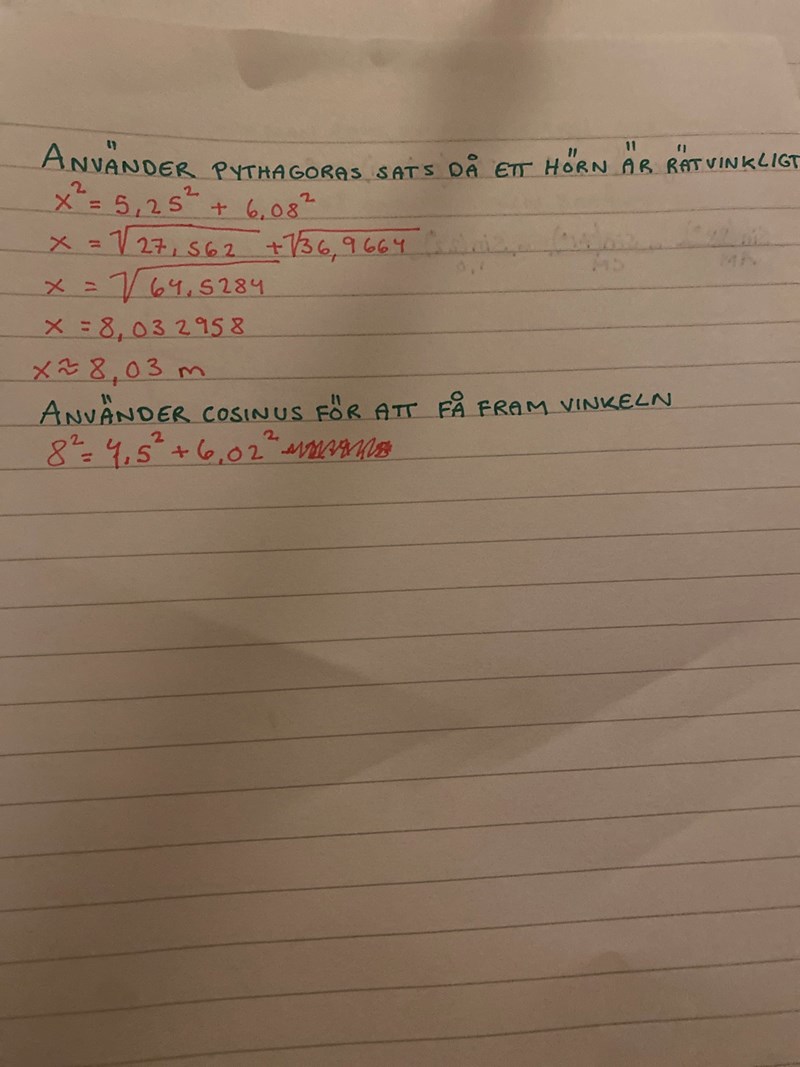 ANVÄNDER PYTHAGORAS SATS DÅ ETT HÖRN ÄR RÄTVINKLIGT
x² = 5,25² + 6,08²
x = √27,562 + √36,9664
x = √64,5284
x = 8,032958
x ≈ 8,03 m
ANVÄNDER COSINUS FÖR ATT FÅ FRAM VINKELN
8² = 4,5² + 6,02²